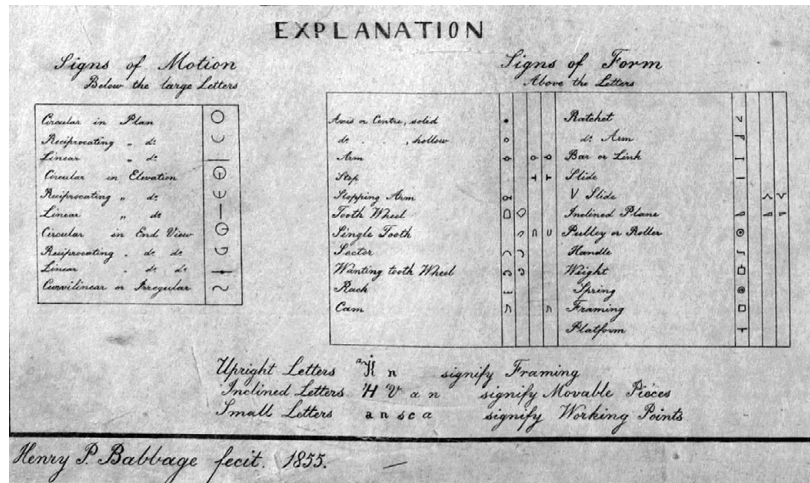 EXPLANATION
Signs of Motion
Below the large Letters
Circular in Plan
Reciprocating " do
Linear " do
Circular in Elevation
Reciprocating " do
Linear " do
Circular in End View
Reciprocating " do do
Linear " do do
Curvilinear or Irregular
Signs of Form
Above the Letters
Axis or Centre, solid
do " , hollow
Arm
Step
Stepping Arm
Tooth Wheel
Single Tooth
Sector
Wanting tooth Wheel
Rack
Cam
Ratchet
do Arm
Bar or Link
Slide
V Slide
Inclined Plane
Pulley or Roller
Handle
Weight
Spring
Framing
Platform
Upright Letters n signify Framing
Inclined Letters H V a n signify Movable Pieces
Small Letters a n s c a signify Working Points
Henry P. Babbage fecit. 1855.